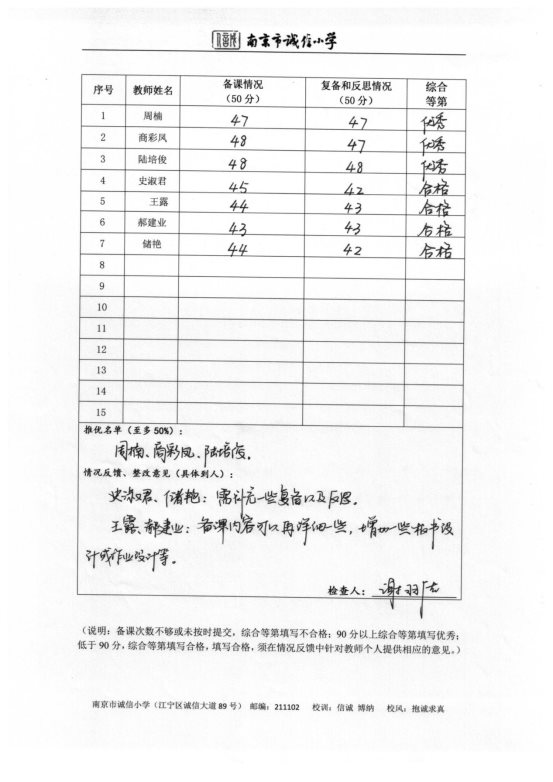 南京市诚信小学
序号 教师姓名 备课情况（50分） 复备和反思情况（50分） 综合等第
1 周楠 47 47 优秀
2 商彩凤 48 47 优秀
3 陆培俊 48 48 优秀
4 史淑君 45 42 合格
5 王露 44 43 合格
6 郝建业 43 43 合格
7 储艳 44 42 合格
8
9
10
11
12
13
14
15
推优名单（至多50%）：
周楠、商彩凤、陆培俊。
情况反馈、整改意见（具体到人）：
史淑君、储艳：需补充一些复备以及反思。
王露、郝建业：备课内容可以再详细一些，增加一些板书设
计或作业设计等。
检查人：谢羽
（说明：备课次数不够或未按时提交，综合等第填写不合格；90分以上综合等第填写优秀；
低于90分，综合等第填写合格，填写合格，须在情况反馈中针对教师个人提供相应的意见。）
南京市诚信小学（江宁区诚信大道89号） 邮编：211102 校训：信诚 博纳 校风：抱诚求真